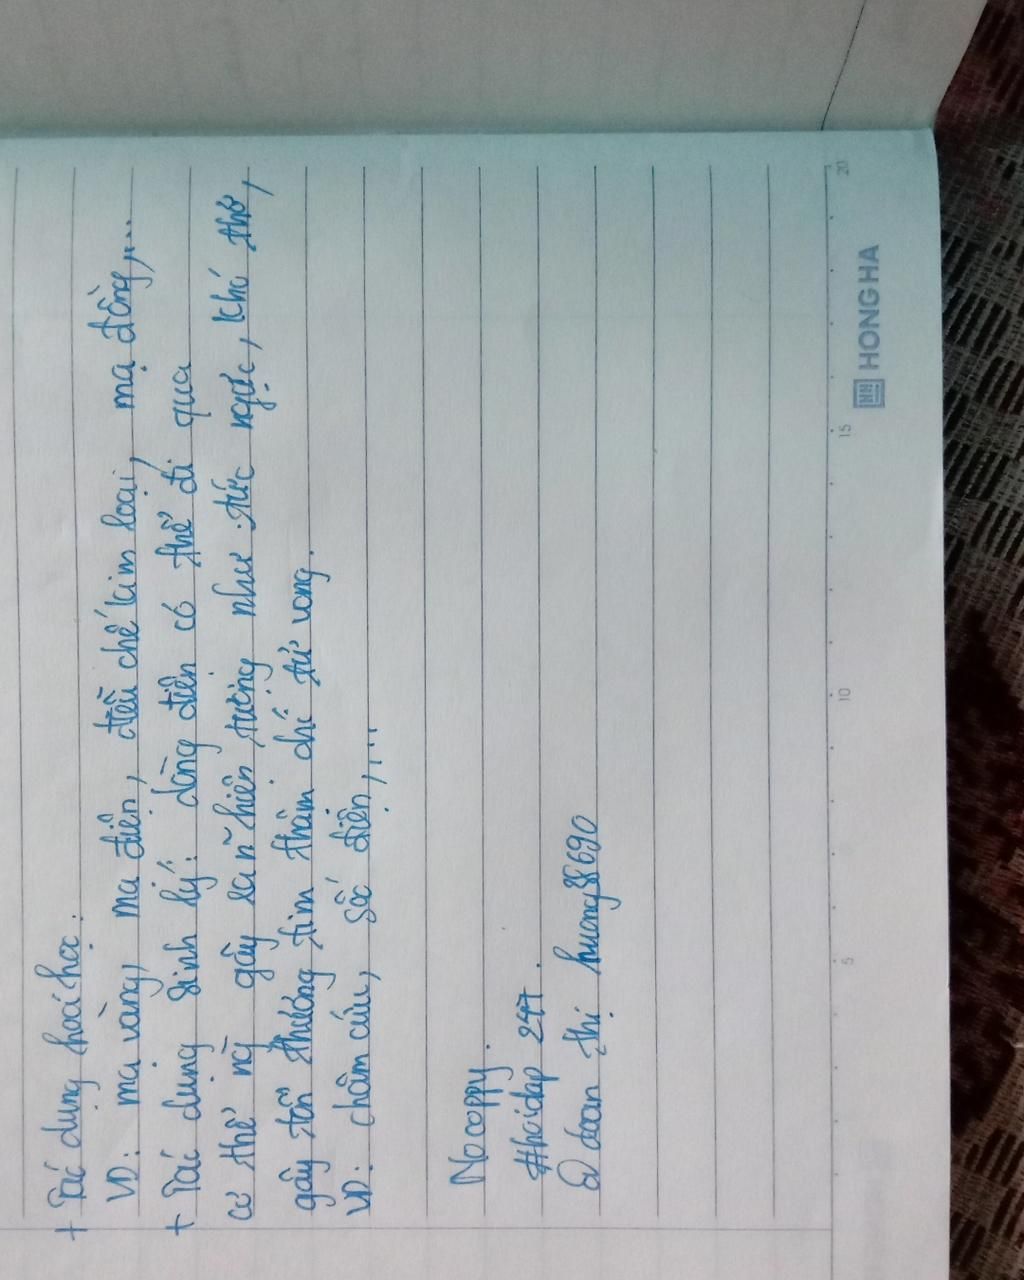 + Tác dụng hoá học:
VD: mạ vàng, mạ điện, điều chế kim loại, mạ đồng,...
+ Tác dụng sinh lý: dòng điện có thể đi qua
cơ thể ng gây ra hiện tượng như tức ngực, khó thở,
gây tổn thương tim thậm chí tử vong.
VD: châm cứu, sốc điện,...
No coppy.
#hoidap 247.
@ doan thị huong38690
HONG HA
5
10
15
20